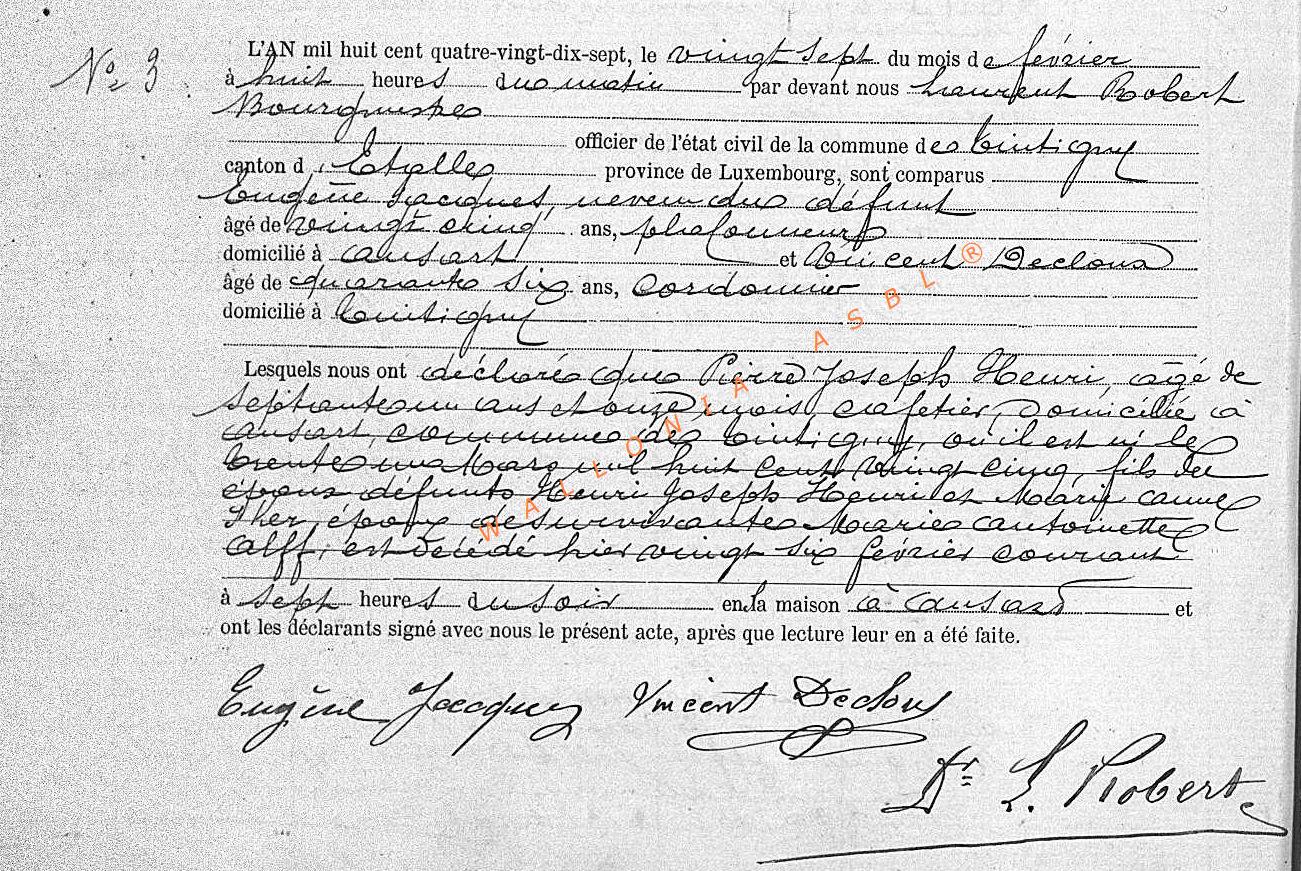 N° 3
L'AN mil huit cent quatre-vingt-dix-sept, le vingt sept du mois de février
à huit heures du matin par devant nous Laurent Robert
Bourgmestre
officier de l'état civil de la commune de Tintigny
canton d'Etalle province de Luxembourg, sont comparus
Eugène Jacques, neveu du défunt
âgé de vingt cinq ans, plafonneur
domicilié à Ansart et Vincent Decloux
âgé de quarante six ans, Cordonnier
domicilié à Tintigny
Lesquels nous ont déclaré que Pierre Joseph Henri, âgé de
septante un ans et onze mois, cafetier, domicilié à
Ansart, commune de Tintigny, où il est né le
trente un Mars mil huit cent vingt cinq, fils des
époux défunts Henri Joseph Henri et Marie Anne
époux de survivante Marie Antoinette
Alff, est décédé hier vingt six février courant
à sept heures du soir en sa maison à Ansart et
ont les déclarants signé avec nous le présent acte, après que lecture leur en a été faite.
Eugène Jacques Vincent Decloux
Dr L. Robert
WALLONIA ASBL ®